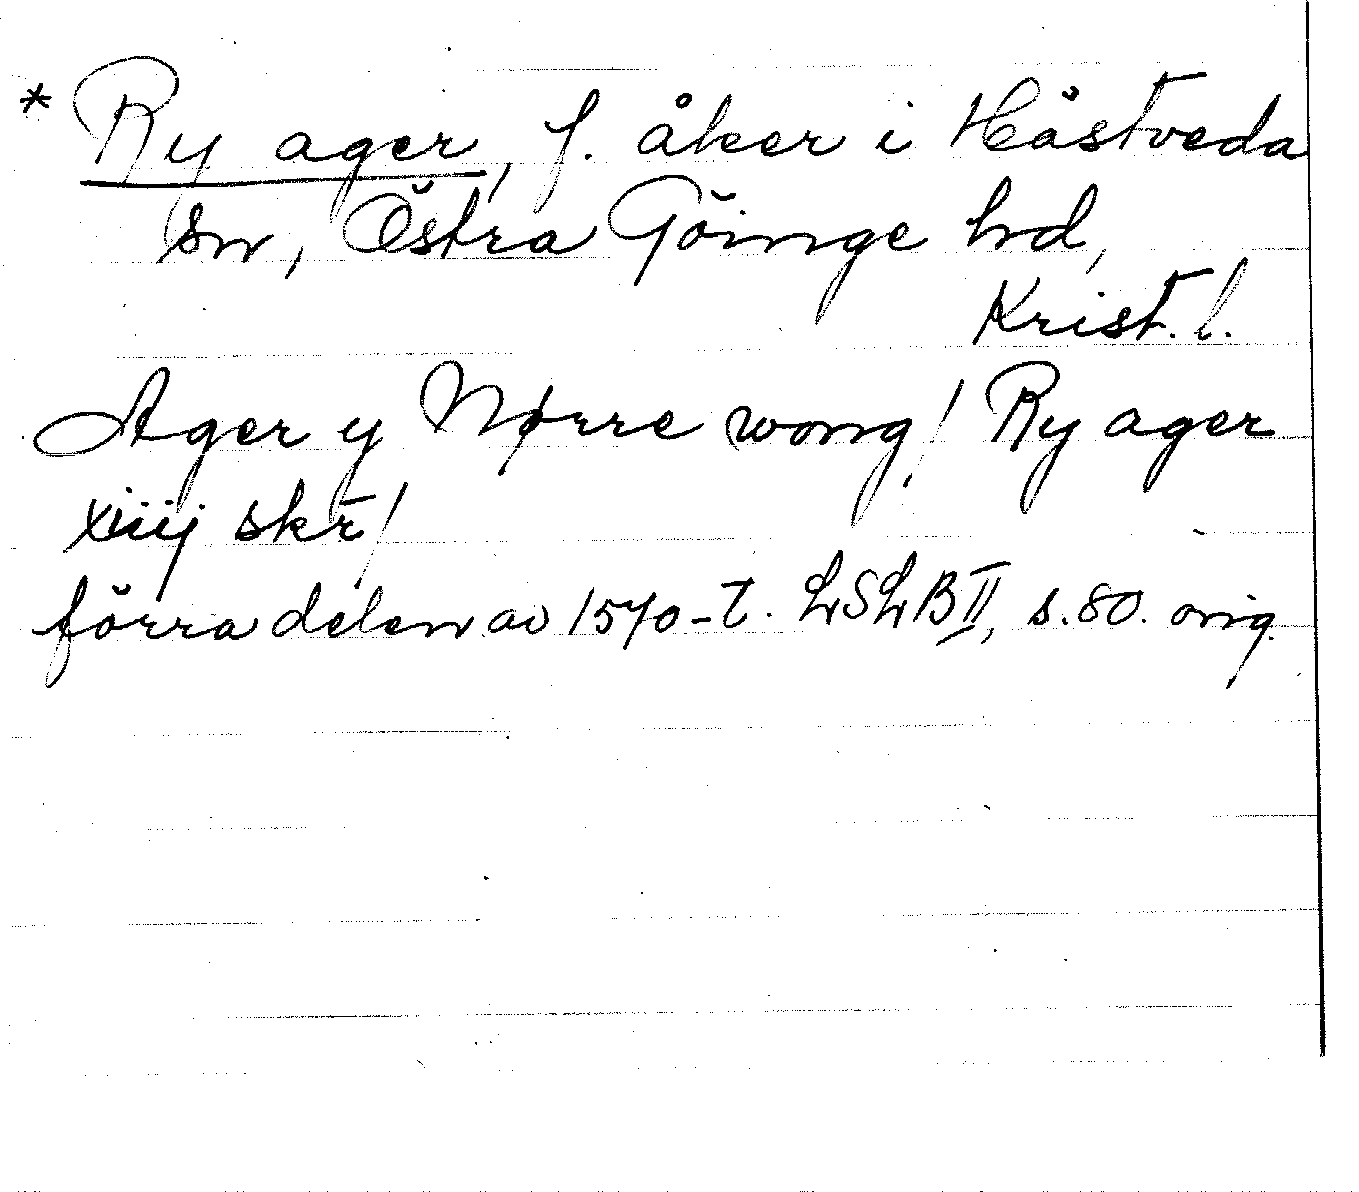 * Ry ager, f. åker i Hästveda
sn, Östra Göinge hd,
Krist. l.
Ager y Nørre wong / Ry ager
xiiij skr /
förra delen av 1570-t. LSLB II, s. 80. orig.